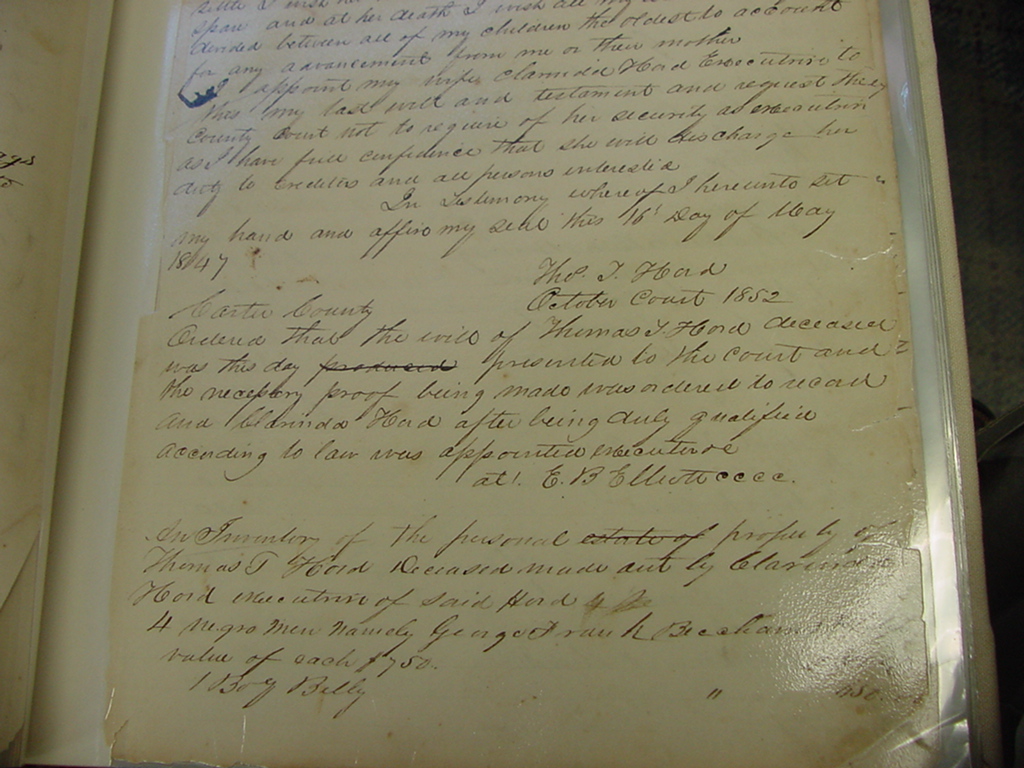 little I wish her
spare and at her death I wish all my
devided between all of my children the oldest to account
for any advancement from me or their mother
I appoint my wife Clarinda Hord Executrix to
this my last will and testament and request the
County Court not to require of her security as executrix
as I have full confidence that she will discharge her
duty to Creditors and all persons interested
In Testimony whereof I hereunto set
my hand and affix my seal this 16t Day of May
1847
Tho. T. Hord
Carter County October Court 1852
Ordered that the will of Thomas T Hord deceased
was this day produced presented to the court and
the necessary proof being made was ordered to record
and Clarinda Hord after being duly qualified
according to law was appointed executrix
att. E. B Elliott cccc.
An Inventory of the personal estate of property of
Thomas T Hord Deceased made out by Clarinda
Hord executrix of said Hord
4 negro men namely George Frank Beecham
value of each $750.
1 Boy Billy "